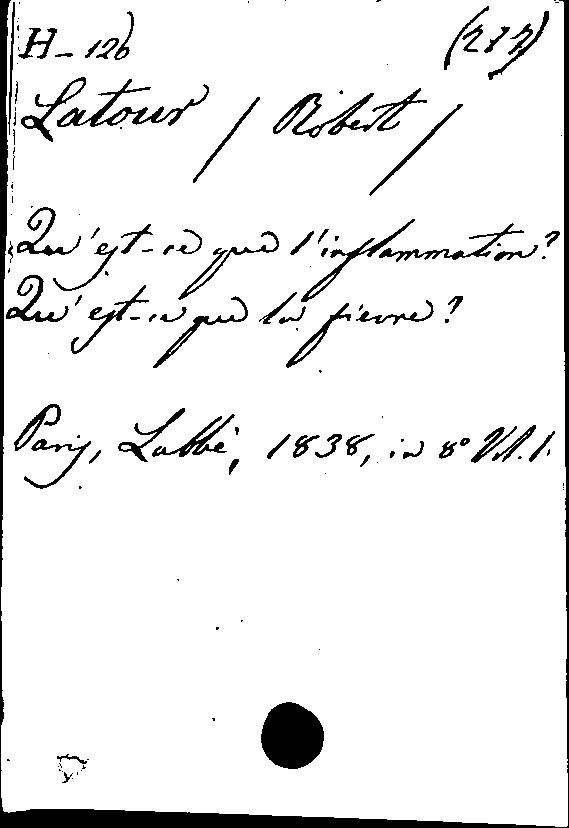 H-126
Latour / Robert /
Qu'est-ce que l'inflammation?
Qu'est-ce que la fievre?
Paris, Labbé, 1838, in 8º Vol. 1.